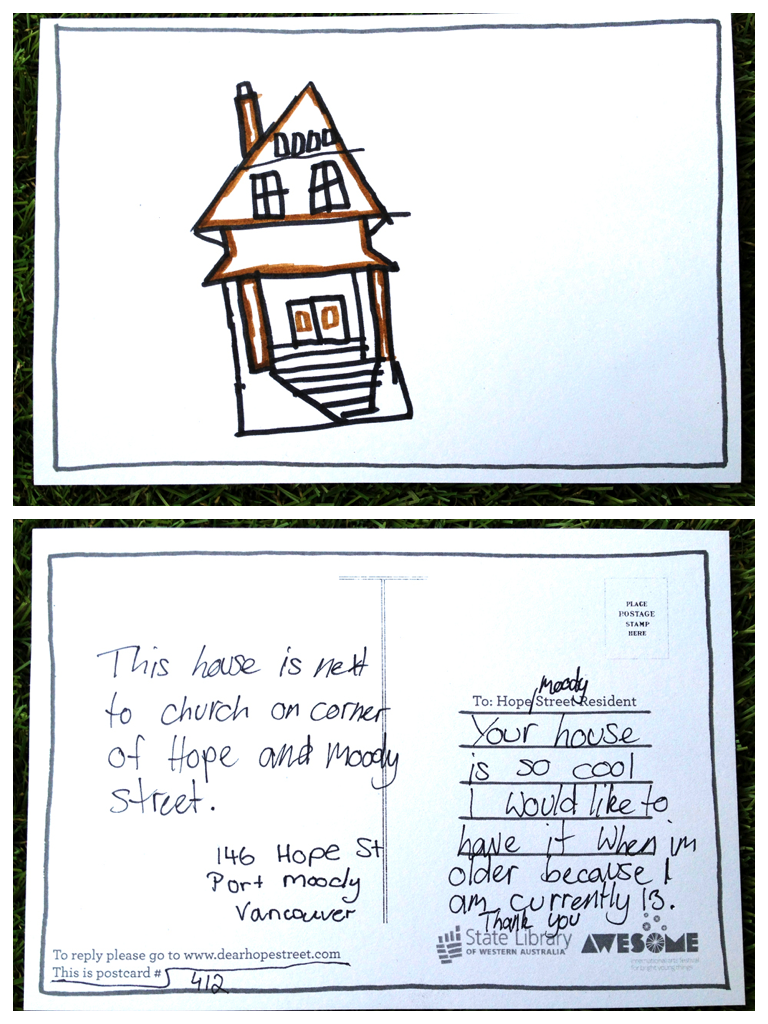 This house is next
to church on corner
of Hope and Moody
street.
146 Hope St
Port moody
Vancouver
To reply please go to www.dearhopestreet.com
This is postcard #
412
PLACE
POSTAGE
STAMP
HERE
moody
To: Hope/Street Resident
Your house
is so cool
I would like to
have it when im
older because I
am currently 13.
Thank you
State Library
OF WESTERN AUSTRALIA
AWESOME
international arts festival
for bright young things